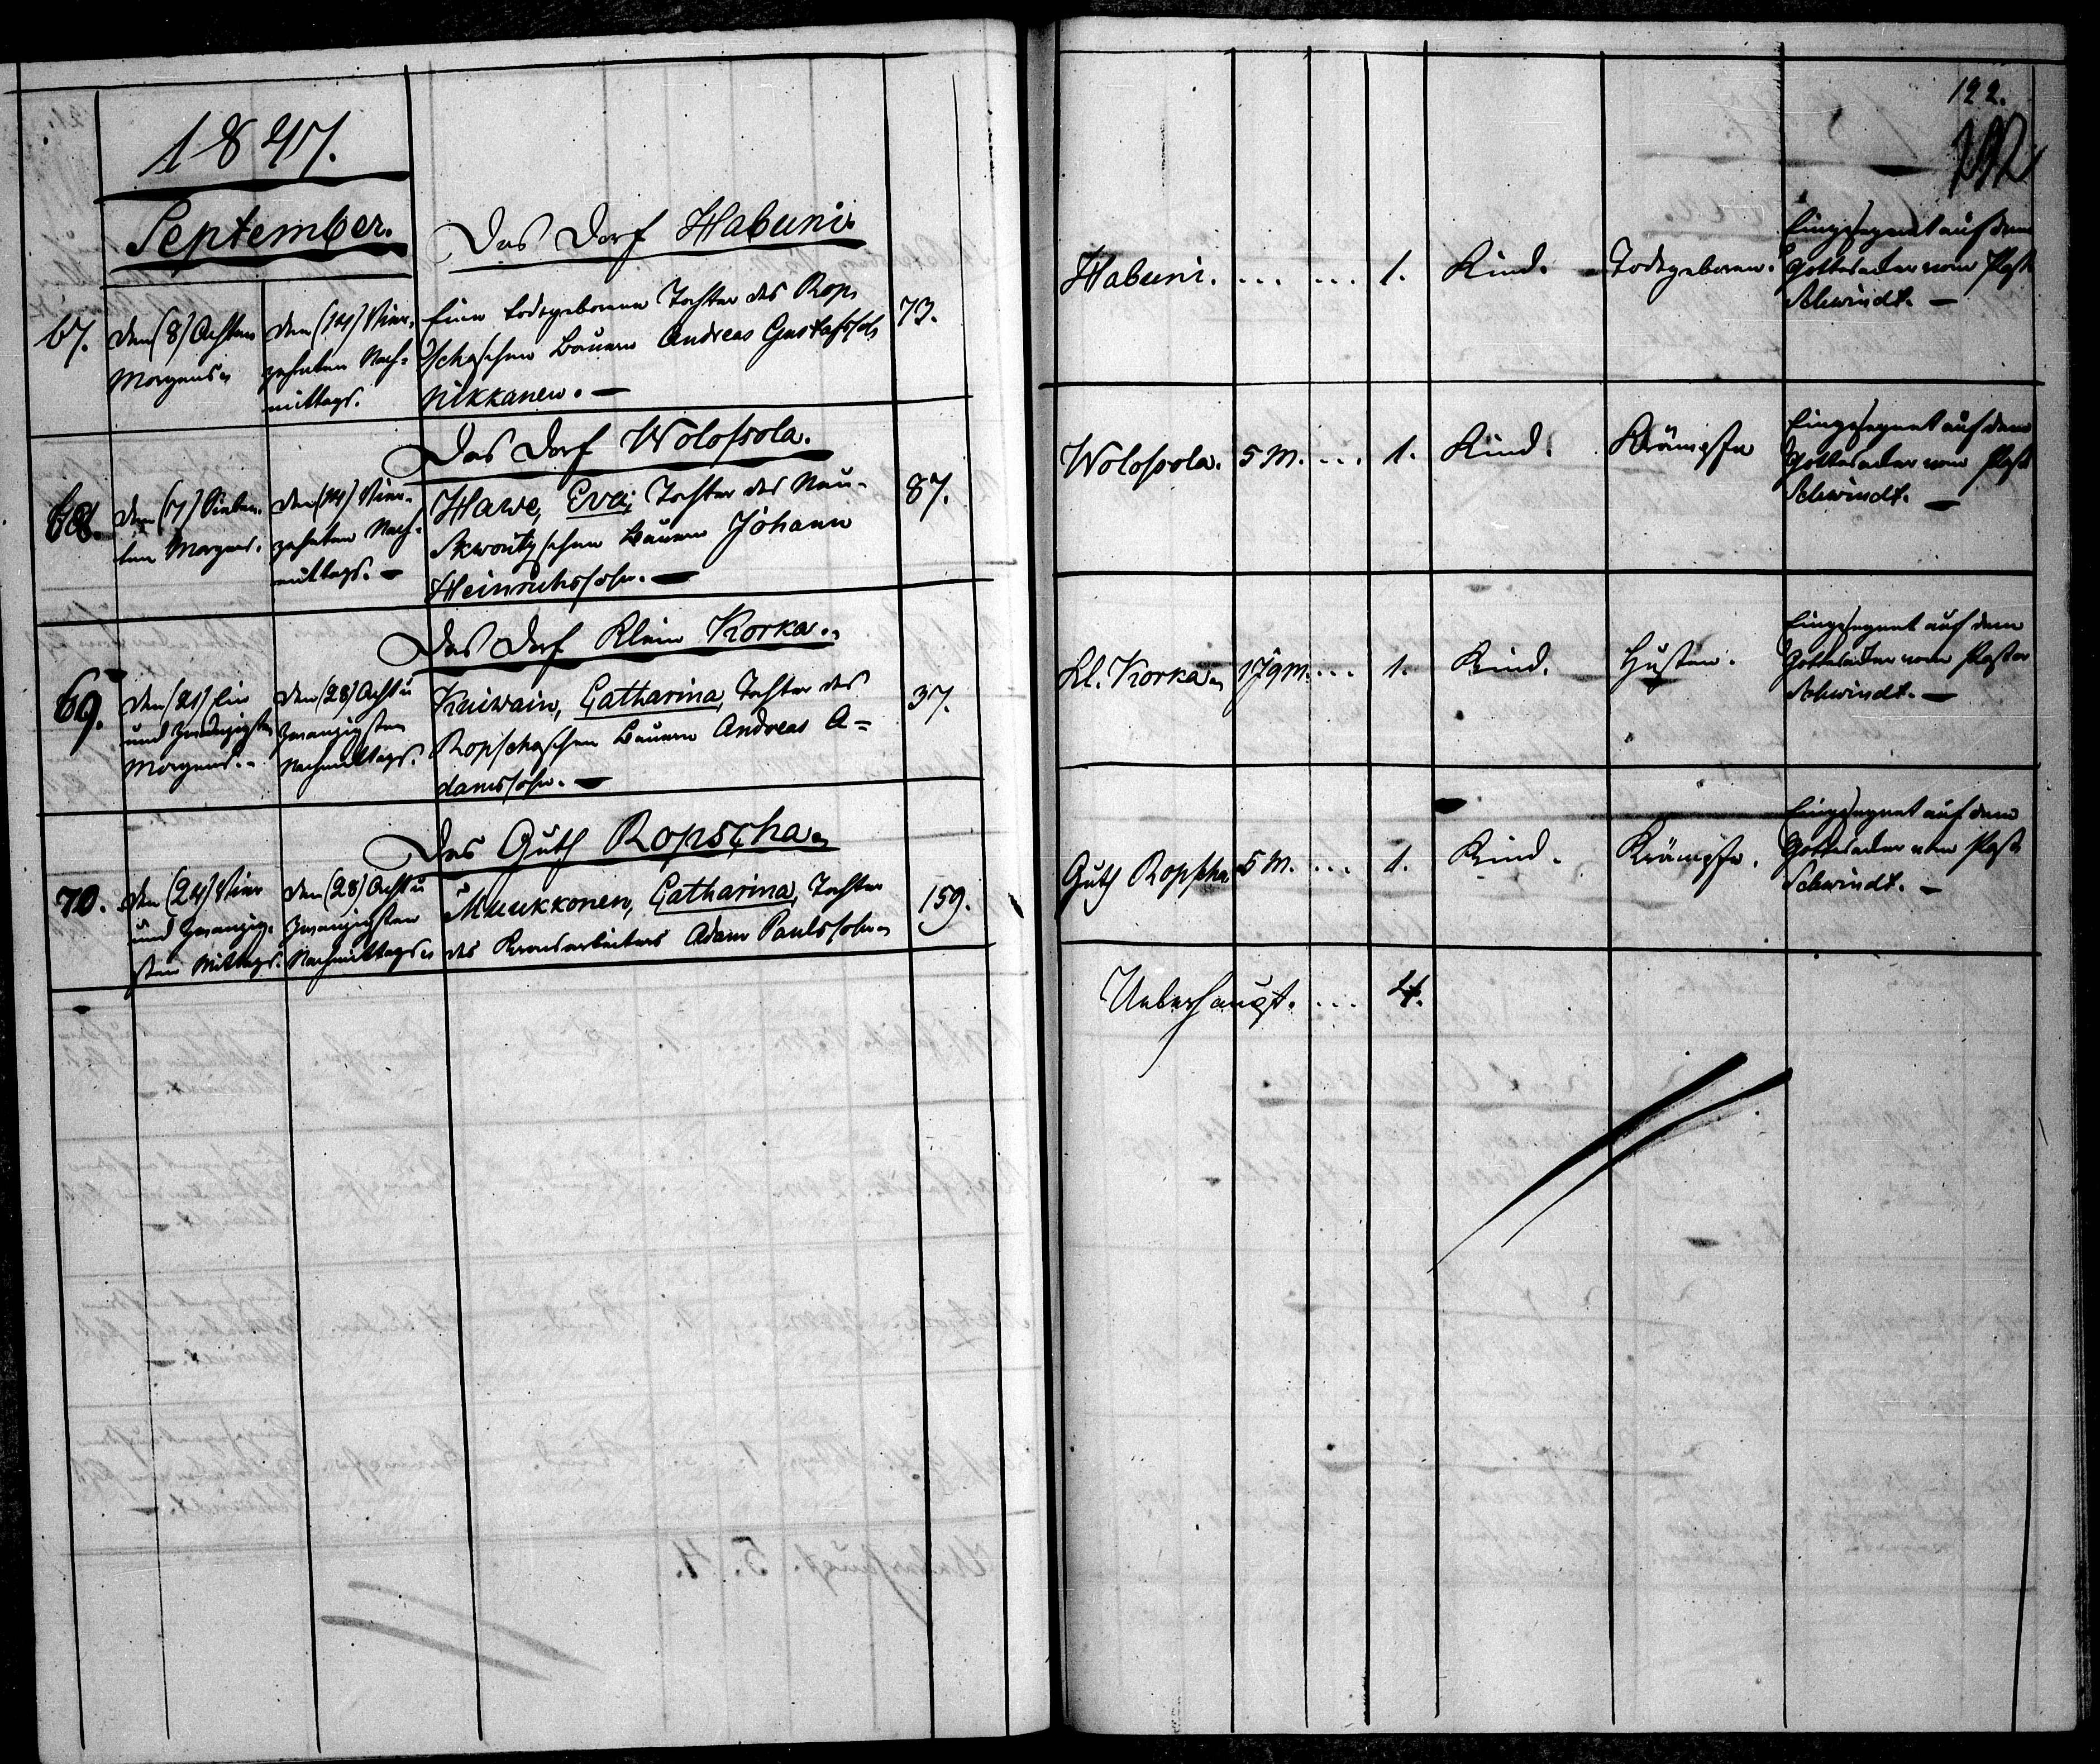 1847.
September.
Das Dorf Habuni.
67.
den (8) Achten
Morgens
den (14) Vier-
zehnten Nach-
mittags.
Eine todtgeborene Tochter des Rop-
schaschen Bauern Andreas Gustafssoh
Nikkanen. —
73.
Das Dorf Wolossola.
68.
den (7) Sieben-
ten Morgens.
den (14) Vier-
zehnten Nach-
mittags. —
Hawe, Eva, Tochter des Bauern
Skworitzschen Bauern Johann
Heinrichssohn. —
87.
Das Dorf Klein Korka.
69.
den (21) Ein
und Zwanzigsten
Morgens.
den (28) Acht u
Zwanzigsten
Nachmittags.
Kuiwain, Catharina, Tochter des
Ropschaschen Bauern Andreas A-
damssohn. —
37.
Das Guth Ropscha
70.
den (24) Vier
und Zwanzig-
sten Mittags.
den (28) Acht u
Zwanzigsten
Nachmittags
Muukkonen, Catharina, Tochter
des Kronsarbeiters Adam Paulssohn
159.
122.
Habuni. ... ... 1. Kind. Todtgeboren.
Eingesegnet auf dem
Gottesacker vom Past
Schwindt. —
Wolossola. 5 M. ... 1. Kind. Krämpfe
Eingesegnet auf dem
Gottesacker vom Past
Schwindt. —
Kl. Korka 1 J 9 M. ... 1. Kind. Husten.
Eingesegnet auf dem
Gottesacker vom Pastor
Schwindt. —
Guth Ropscha 5 M. ... 1. Kind. Krämpfe.
Eingesegnet auf dem
Gottesacker vom Past
Schwindt. —
Ueberhaupt. ... 4.